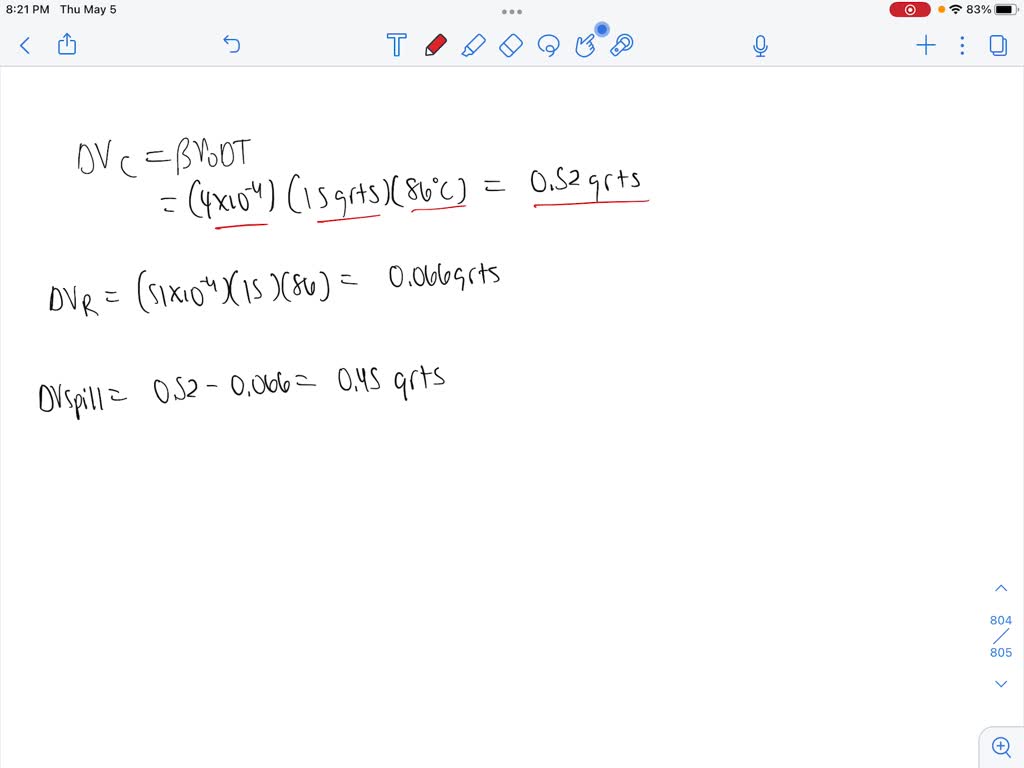 8:21 PM Thu May 5
83%
DVc = βV₀DT
= (4x10⁻⁴) (15 qrts) (86°C) = 0.52 qrts
DV_R = (51x10⁻⁴)(15)(86) = 0.066 qrts
DVspill = 0.52 - 0.066 = 0.45 qrts
804
/
805